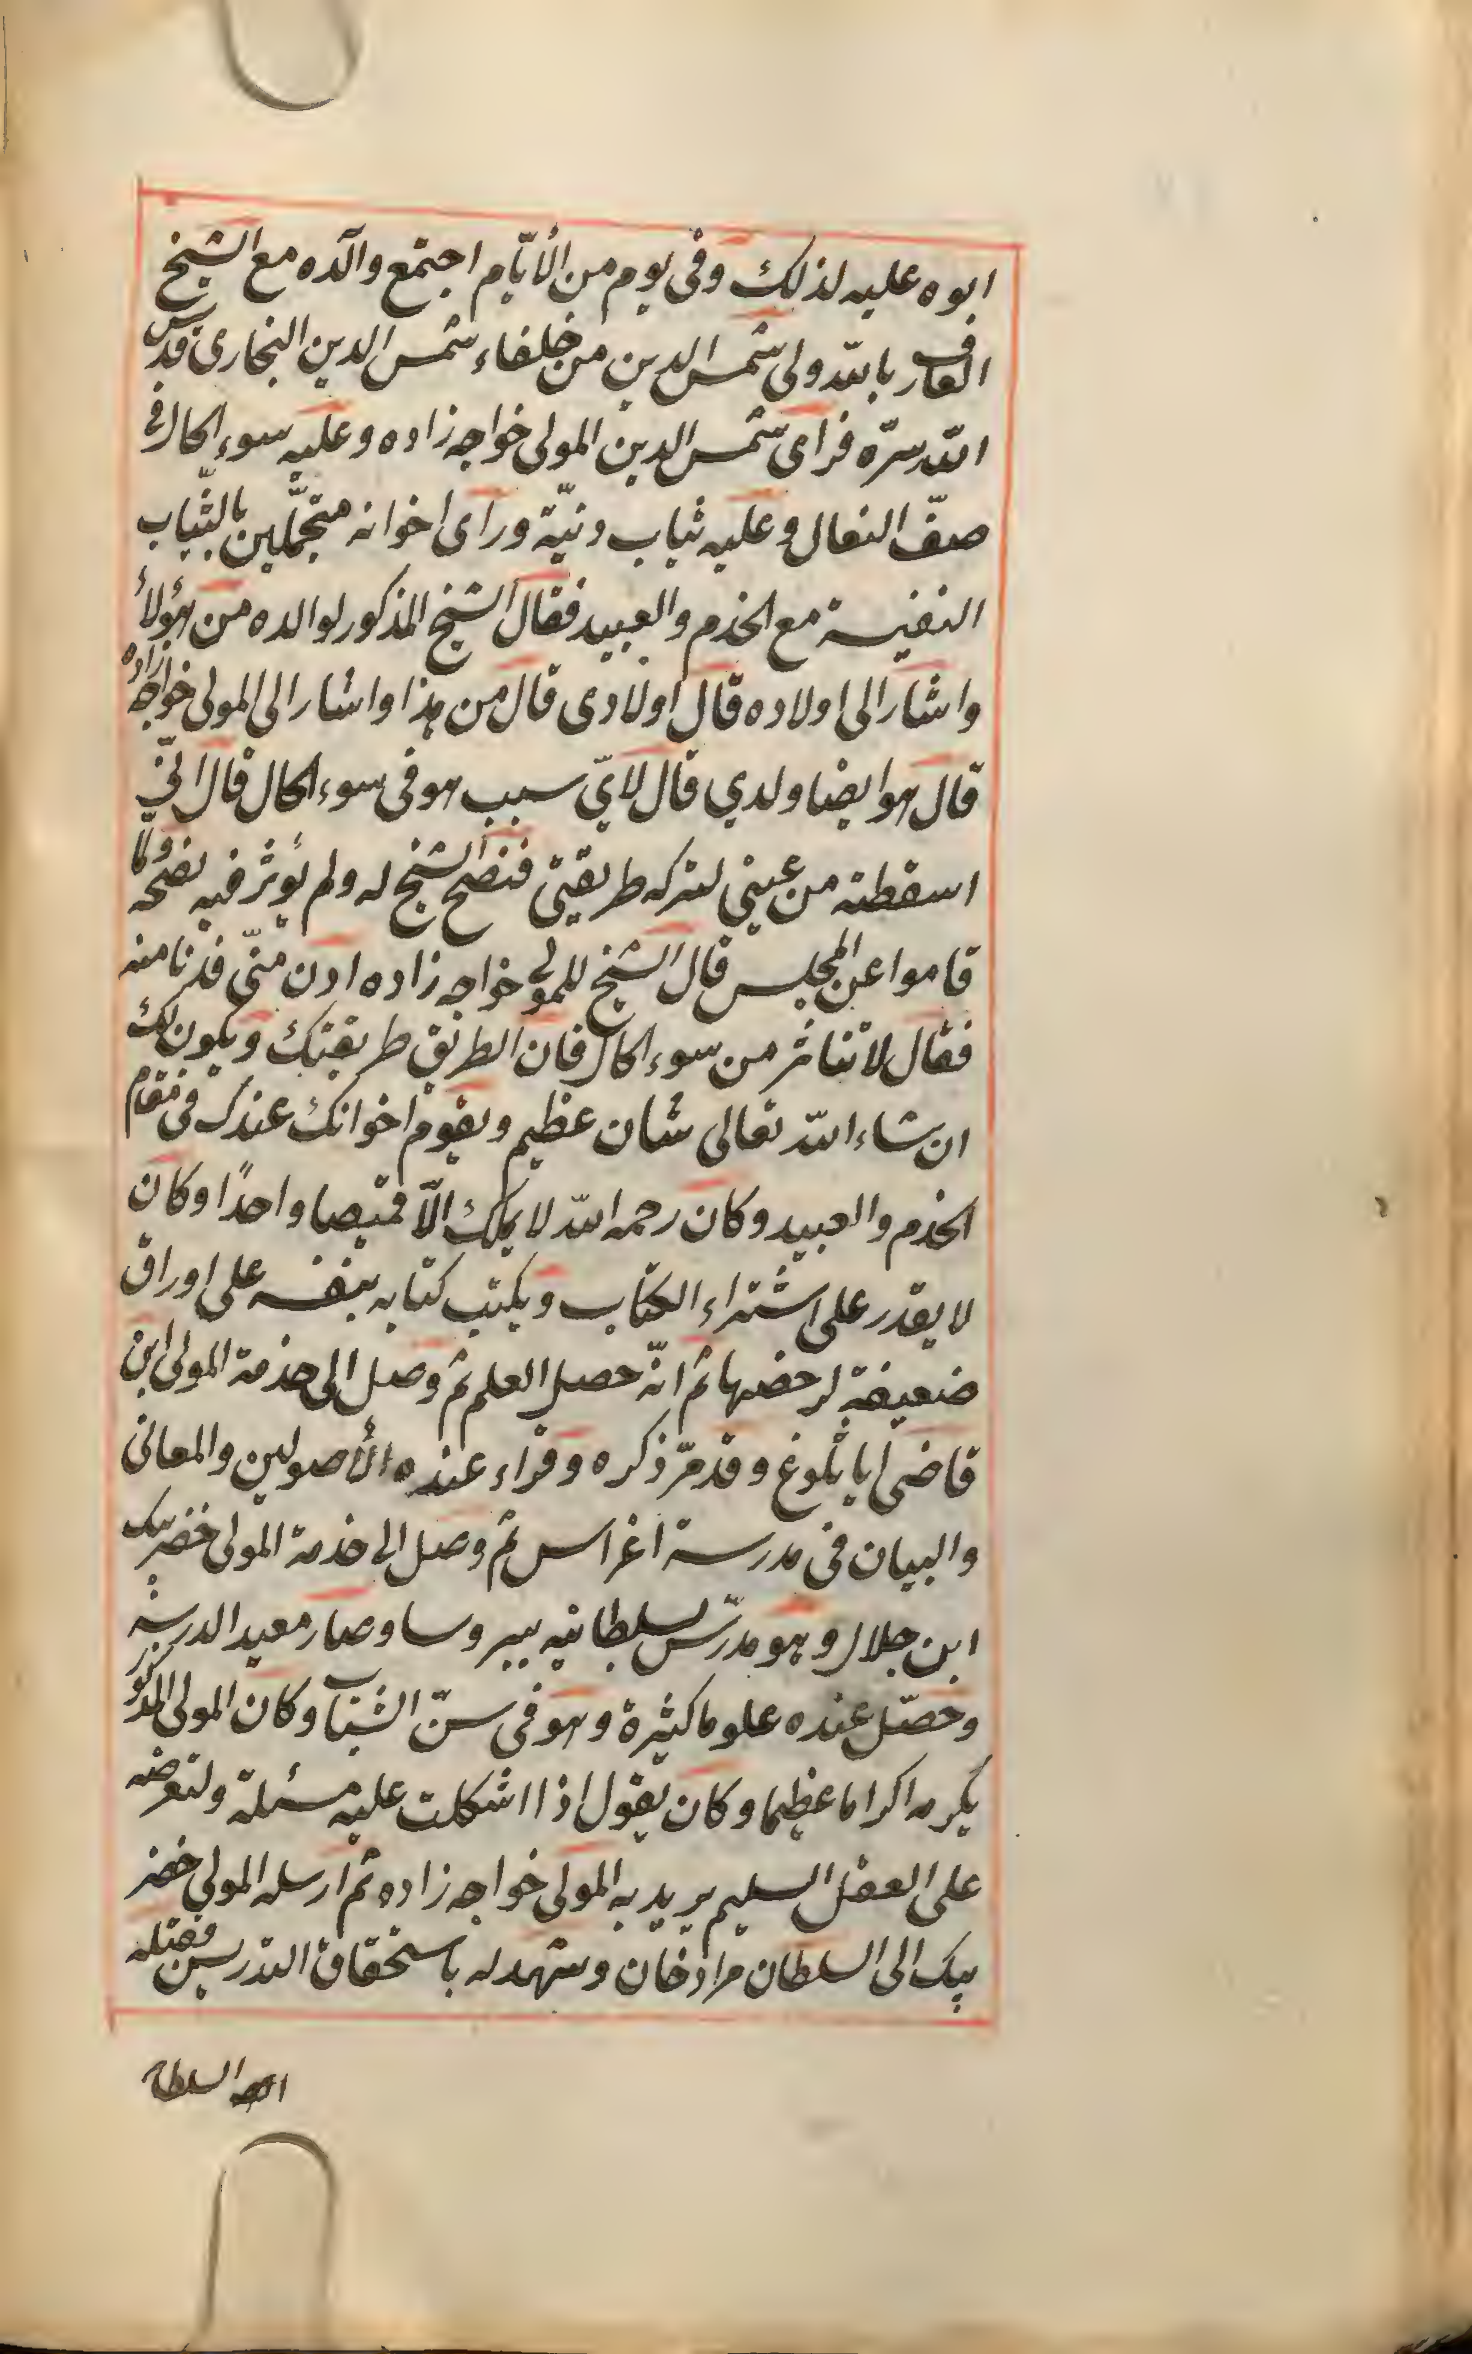 ابوه عليه لذلك وفى يوم من الأيّام اجتمع والده مع الشيخ
العارف بالله ولى شمس الدين من خلفاء شمس الدين البخارى قدس
الله سرّه فراى شمس الدين المولى خواجه زاده وعليه سوء الحال فى
صفّ النعال وعليه ثياب دنيّة وراى اخوانه متجمّلين بالثّياب
النفيسة مع الخدم والعبيد فقال الشيخ المذكور لوالده من هؤلاء
واشار الى اولاده قال اولادى قال من هذا واشار الى المولى خواجه زاده
قال هو ايضا ولدي قال لايّ سبب هو فى سوء الحال قال انّى
اسقطته من عينى لتركه طريقتى فنصح الشيخ له ولم يؤثر فيه نصحه ولما
قاموا عن المجلس قال الشيخ للمولى خواجه زاده ادن منّى فدنا منه
فقال لا تتأثر من سوء الحال فان الطريق طريقتك ويكون لك
ان شاء الله تعالى شان عظيم ويقوم اخوانك عندك فى مقام
الخدم والعبيد وكان رحمه الله لا يملك الّا قميصا واحدًا وكان
لا يقدر على اشتراء الكتاب ويكتب كتابه بنفسه على اوراق
ضعيفة لرخصها ثم انّه حصل العلم ثم وصل الى خدمة المولى ابن
قاضى اياثلوغ وقد مرّ ذكره وقراء عنده الأصولين والمعانى
والبيان فى مدرسة اغراس ثم وصل الى خدمة المولى خضر بيك
ابن جلال وهو مدرّس بسلطانيه ببروسا وصار معيد الدرسه
وحصّل عنده علوما كثيرة وهو فى سنّ الشباب وكان المولى المذكور
يكرمه اكراما عظيما وكان يقول اذا اشكلت عليه مسئلة ولتعرضه
على العقل السليم يريد به المولى خواجه زاده ثم ارسله المولى خضر
بيك الى السلطان مراد خان وشهد له باستحقاق التدريس فقبله
السلطا